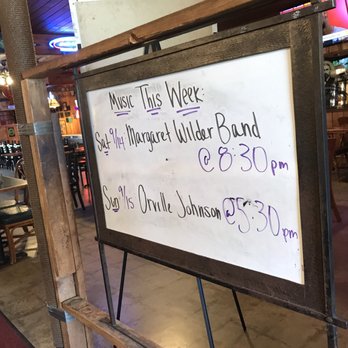 Music This Week:
Sat 9/14 Margaret Wilder Band
@ 8:30 pm
Sun 9/15 Orville Johnson @ 5:30 pm